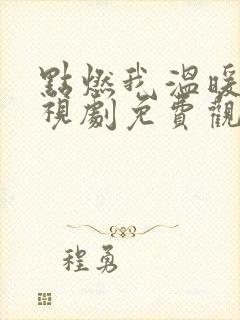 點燃我溫暖
視劇免費觀
程勇